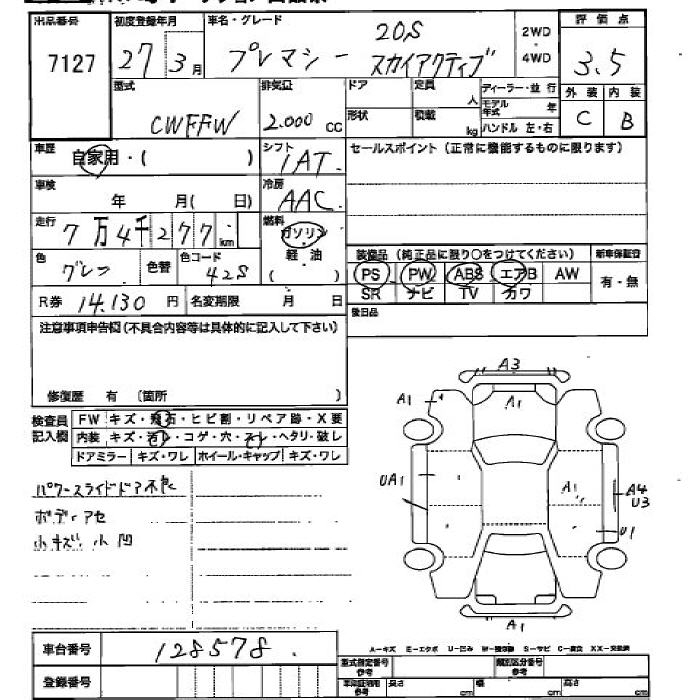 出品番号 初度登録年月 車名・グレード 2WD・4WD 評価点
7127 27年3月 プレマシー 20S スカイアクティブ 3.5
型式 排気量 ドア 定員 人 ディーラー・並行 外装 内装
CWFFW 2.000 cc 形状 積載 kg モデル年式 年 ハンドル 左・右 C B
車歴 自家用・( ) シフト 1AT. セールスポイント(正常に機能するものに限ります)
車検 年 月( 日) 冷房 AAC
走行 7万4千277km 燃料 ガソリン
軽油
( )
色 グレー 色替 色コード 42S
装備品(純品に限り○をつけてください) 新車保証書
PS PW ABS エアB AW 有・無
SR ナビ TV カワ
R券 14.130 円 名変期限 月 日
後日品
注意事項申告欄(不具合内容等は具体的に記入して下さい)
修復歴 有 (箇所 )
検査員記入欄 FW キズ・飛石・ヒビ割・リペア跡・X要
内装 キズ・汚レ・コゲ・穴・スレ・ヘタリ・破レ
ドアミラー キズ・ワレ ホイール・キャップ キズ・ワレ
パワースライドドア不良
ボディアセ
小キズ 小凹
A3
A1 A1
UA1 A1 A4
U3
U1
A1
A-キズ E-エクボ U-凹み W-補修跡 S-サビ C-腐食 XX-交換済
車台番号 128578.
登録番号
型式指定番号 参考 類別区分番号 参考
参考 長さ cm 幅 cm 高さ cm